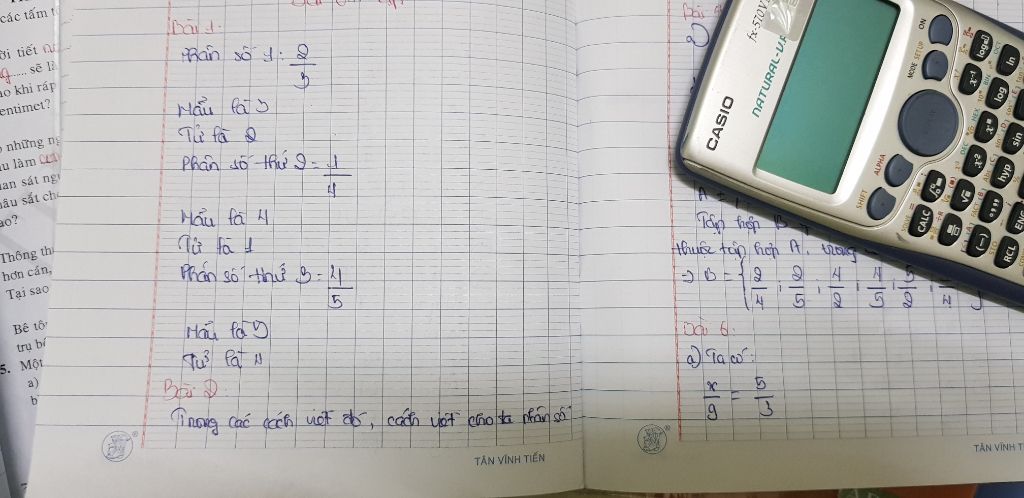 các tấm t
ời tiết
sẽ là
ao khi ráp
entimet?
những ng
u làm
an sát ng
ầu sắt ch
ao?
Thông th
hơn cản,
Tại sao
Bê tô
trụ bê
5. Một
a)
b
Bài 1:
Phân số 1: 2/3
Mẫu là 3
Tử là 2
Phân số thứ 2 = 1/4
Mẫu là 4
Tử là 1
Phân số thứ 3 = 4/5
Mẫu là 5
Tử là 4
Bài 2:
Trong các cách viết đó, cách viết cho ta phân số
TÂN VĨNH TIẾN
Bài
a)
A =
Tập hợp B
thuộc tập hợp A,
=> B = { 2/4 ; 2/5 ; 4/2 ; 4/5 ; 5/2 ; /4 }
Bài 6:
a) Ta có:
x/9 = 5/3
TÂN VĨNH T
CASIO
fx-570V
NATURAL-V.P
SHIFT
ALPHA
MODE SETUP
ON
CALC
x⁻¹
log
ln
x²
log
hyp
sin
(−)
RCL
ENG